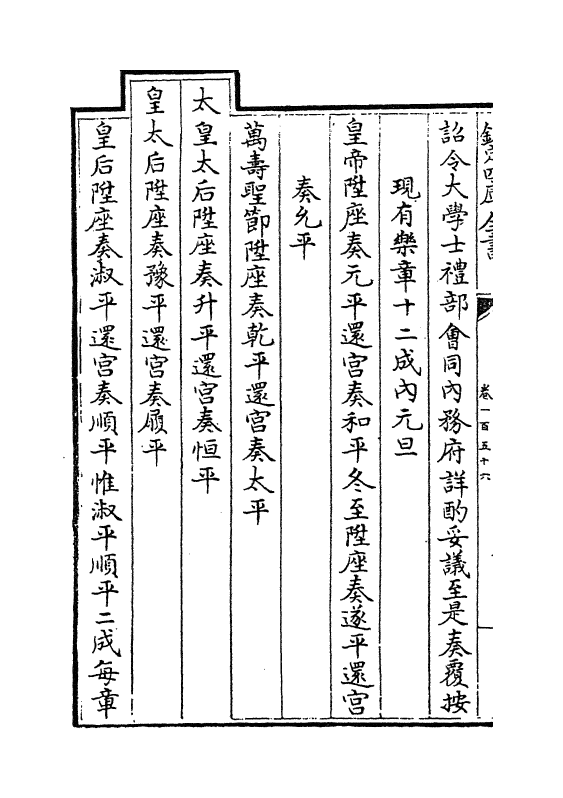 欽定四庫全書
卷一百五十六
詔令大學士禮部會同內務府詳酌妥議至是奏覆按
現有樂章十二成內元旦
皇帝陞座奏元平還宮奏和平冬至陞座奏遂平還宮
奏允平
萬壽聖節陞座奏乾平還宮奏太平
太皇太后陞座奏升平還宮奏恒平
皇太后陞座奏豫平還宮奏履平
皇后陞座奏淑平還宮奏順平惟淑平順平二成每章